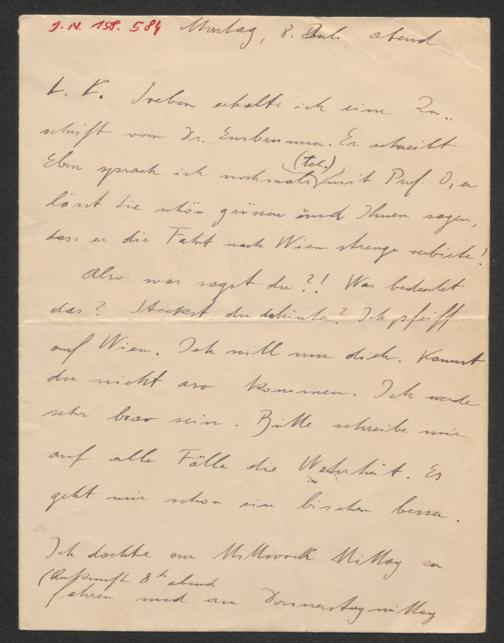 J.N. 158.584 Montag, 8. Juli abend
L. K. Soeben erhalte ich eine Zu„
schrift von Dr. Er schreibt
Eben sprach ich nochmals (tel.) mit Prof. O, er
lässt Sie schön grüssen und Ihnen sagen,
dass er die Fahrt nach Wien strenge verbiete!
Also was sagst du?! Was bedeutet
das? Steckst du dahinter? Ich pfeiff
auf Wien. Ich will nur dich. Kannst
du nicht kommen. Ich werde
sehr brav sein. Bitte schreibe mir
auf alle Fälle die Wahrheit. Es
geht mir schon ein bischen besser.
Ich dachte am Mittwoch Mittag zu
(Ankunft 8h abend
fahren und am Donnerstag mittag